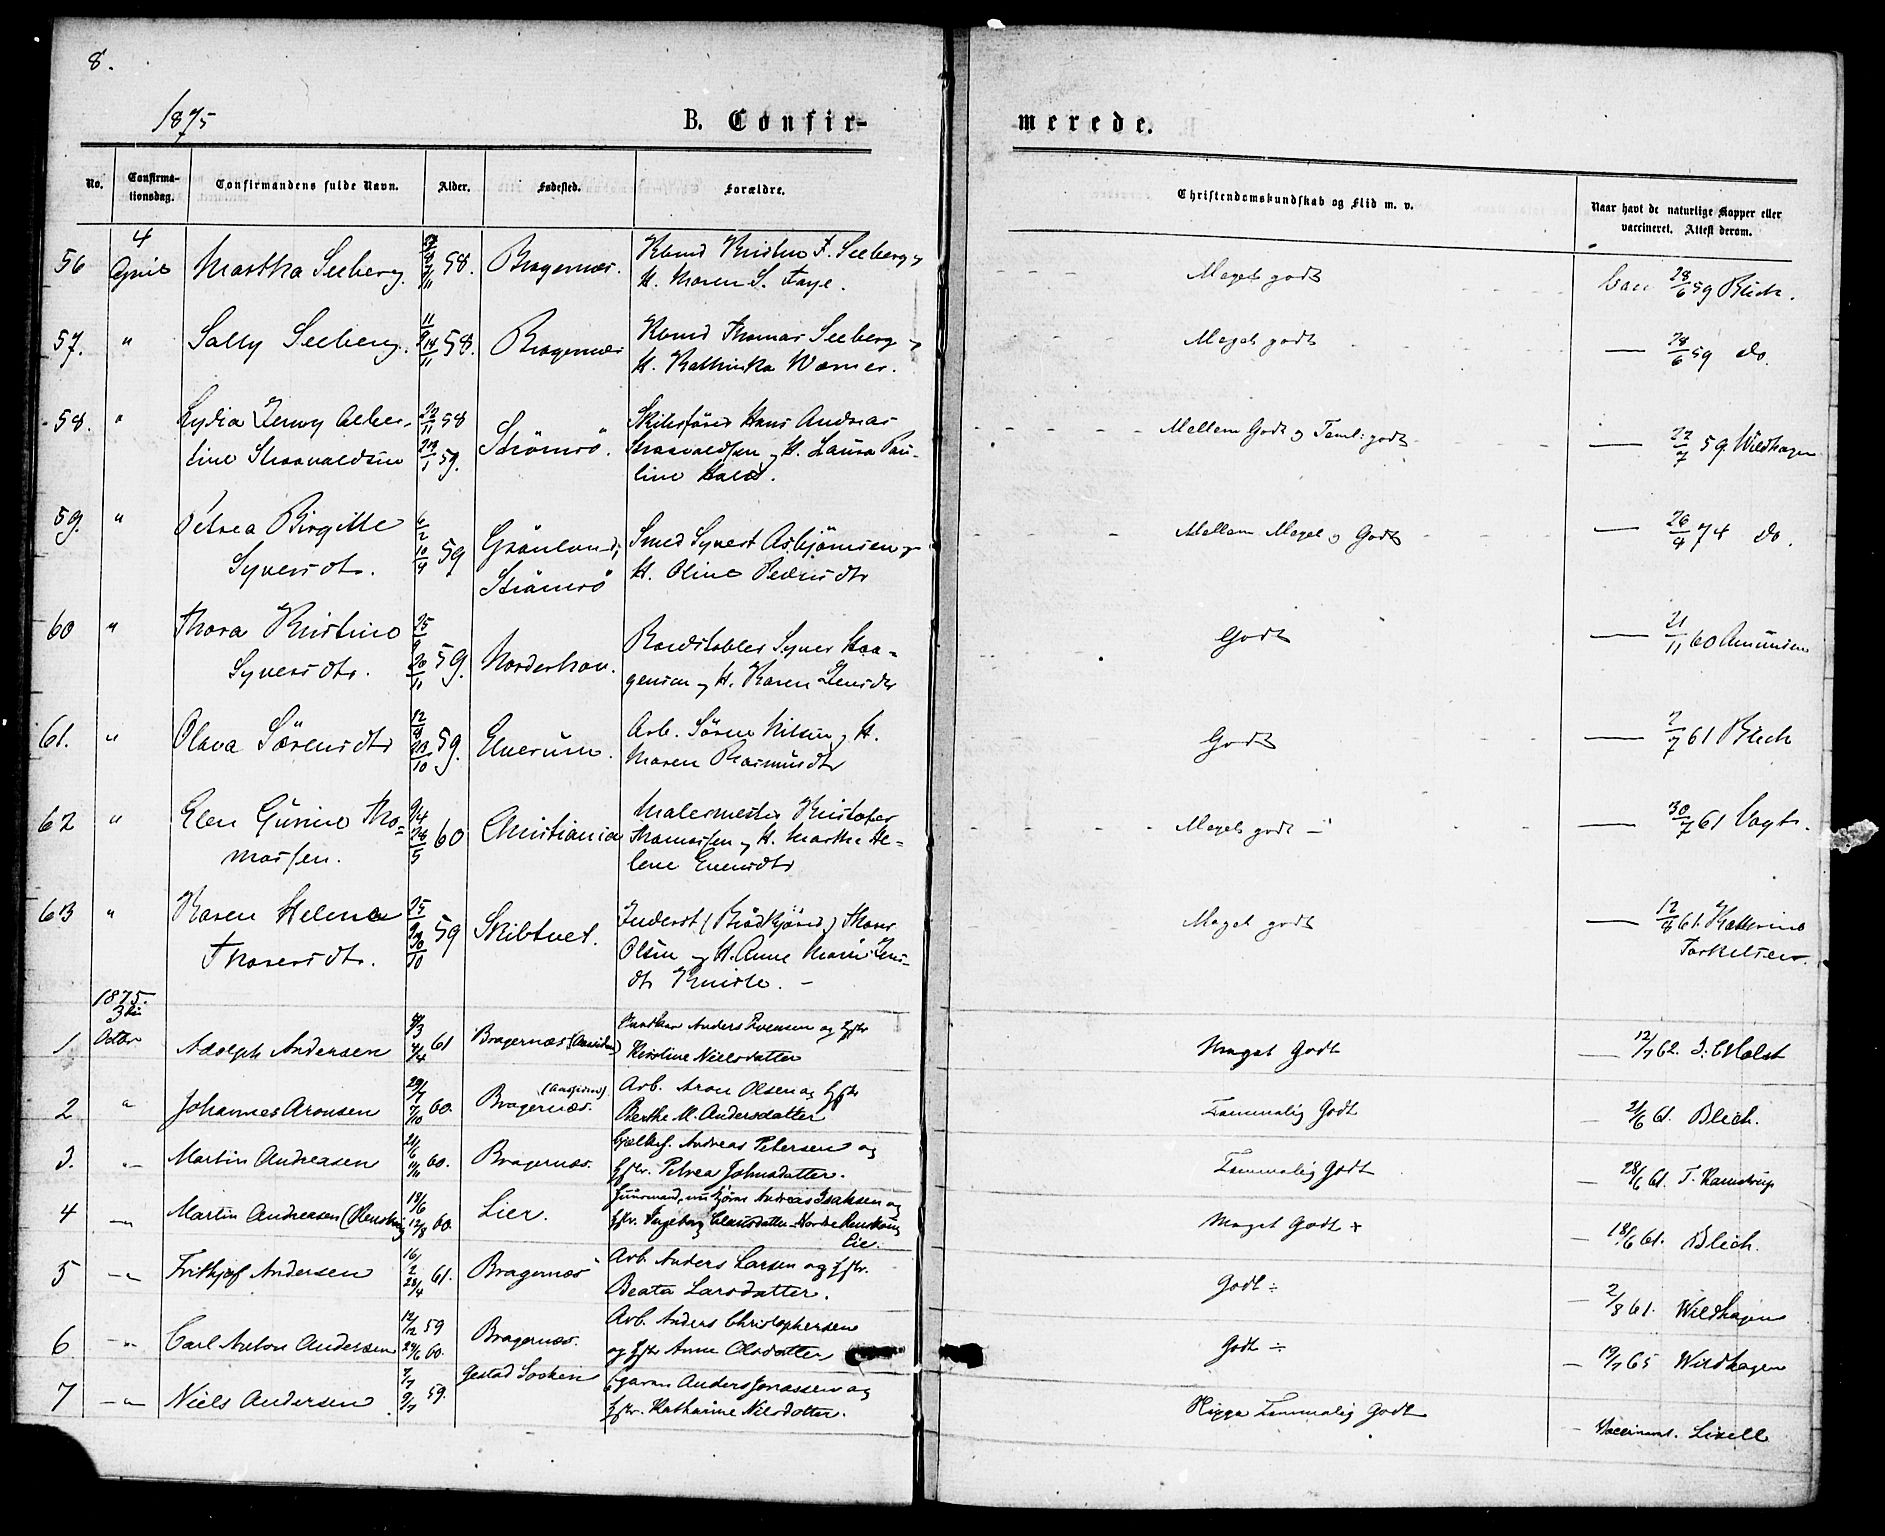 8.
1875
B. Confir-
merede.
No.
Confirma-
tionsdag.
Confirmandens fulde Navn.
Alder.
Fødested.
Forældre.
Christendomskundskab og Flid m. v.
Naar havt de naturlige Kopper eller
vaccineret. Attest derom.
56 4 April Martha Seeberg. 58. Bragernæs. Kbmd Kristen F. Seeberg og
H. Maren S. Faye.
Meget godt
28/6 59 Blich.
57. " Sally Seeberg. 11/9 18/11 58. Bragernæs Kbmd Thomas Seeberg og
H. Kathinka Wærner.
Meget godt
— 28/6 59 do.
58. " Lydia Jenny Alber-
tine Straavaldsen
22/11 58
59.
Strømsö. Skibsfører Hans Andreas
Straavaldsen og H. Laura Pau-
line Hald.
Mellem Godt og Teml: godt
— 22/7 59. Wildhagen
59. " Petrea Birgitte
Syversdtr.
6/2 10/4 59 Grönland,
Strömsö
Smed Syvert Asbjörnsen og
H. Oline Pedersdtr
Mellem Meget og Godt
— 26/4 74 do.
60 " Thora Kristine
Syversdtr.
25/9 20/11 59. Norderhov. Syver Haa-
gensen og H. Karen Jensdtr
Godt
— 21/11 60 Amundsen
61. " Olava Sørensdtr 59. Elverum. Arb. Sören Nilsen og H.
Maren Rasmusdtr
Godt
— 2/7 61 Blich
62 " Elen Gurine Tho-
massen.
60 Christiania Malermester Kristofer
Thomassen og H. Marthe He-
lene Evensdtr
Meget godt —
— 30/7 61 Vogt.
63 " Karen Helene
Thoresdtr.
59 Skibtvet. Inderst (Brødkjører) Thorer
Olsen og H. Anne Marie Jens-
dtr Knidse. —
Meget godt
— 12/8 61. Kathrine
Torkelsen.
1875.
3die
Octbr
1 Adolph Andersen 4/4 61 Bragernæs Anders Evensen og Hstr
Karoline Nielsdatter
Meget Godt
— 12/7 62. J. C Holst
2 " Johannes Aronsen 29/7 7/10 60. Bragernæs. Arb. Aron Olsen og Hstr
Berthe M. Andersdatter
Temmelig Godt
— 21/6 61. Blich.
3. -"- Martin Andreasen 60. Bragernæs. Andreas Petersen og
Hstr. Petrea Johnsdatter.
Temmelig Godt
— 28/6 61. T. Ramstrup
4 -"- Martin Andreasen 18/6 12/8 60. Lier. Huusmand, Andreas Isaksen og
Hstr. Ingeborg Clausdatter
Eie.
Meget Godt +
— 18/6 61. Blich.
5 -"- Frithjof Andersen 16/2 28/4 61. Bragernæs Arb. Anders Larsen og Hstr.
Beata Larsdatter.
Godt ÷
— 2/8 61. Wildhagen
6 -"- Carl Anton Andersen 12/12 59
24/6 60.
Bragernæs. Arb. Anders Christophersen
og Hstr Anne Olsdatter
Godt ÷
— 19/7 65 Wildhagen
7 -"- Niels Andersen 59. Gestad Soknen Anders Jonassen og
Hstr. Katharine Nilsdatter.
Temmelig Godt
— Vaccineret. Lisell